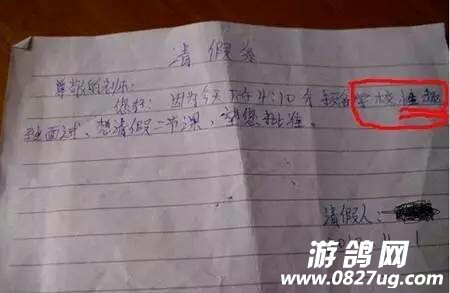 请假条
尊敬的老师：
您好：因为今天下午4:10分 我有学校性趣
班面试，想请假二节课，望您批准。
请假人：
游鸽网
www.0827ug.com